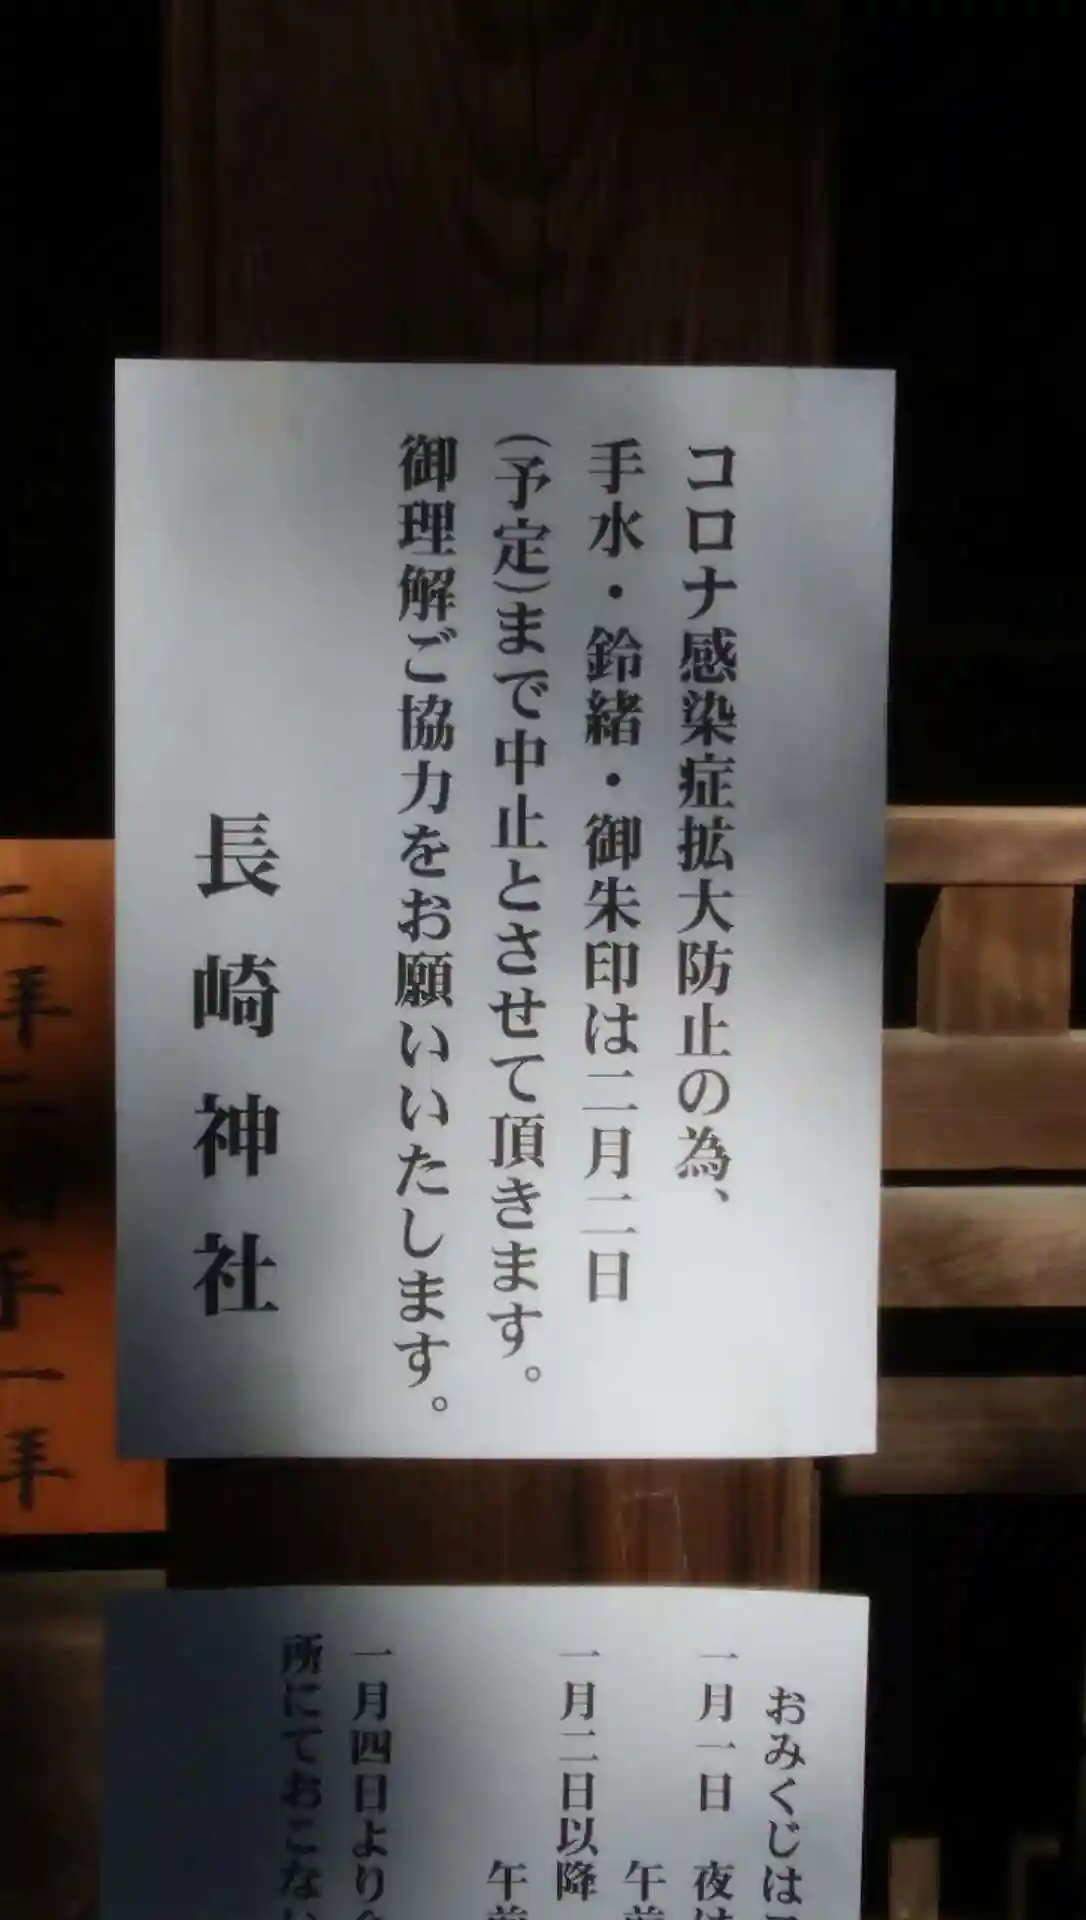 コロナ感染症拡大防止の為、
手水・鈴緒・御朱印は二月二日
(予定)まで中止とさせて頂きます。
御理解ご協力をお願いいたします。
長崎神社
おみくじは
一月一日 夜は
午前
一月二日以降
午前
一月四日より
所にておこない